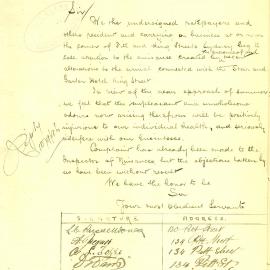 Sir/
We the undersigned ratepayers and
others resident and carrying on business at or near
the corner of Pitt and King Streets Sydney beg to
call attention to the nuisance created by
the urinal connected with the Star and
Garter Hotel King Street
In view of the near approach of summer
we feel that the unpleasant and unwholesome
odours now arising therefrom will be positively
injurious to our individual health, and seriously
interfere with our businesses.
Complaint has already been made to the
Inspector of Nuisances but the objections taken by
us have been without result
We have the honor to be
Sir
Your most obedient Servants
SIGNATURE ADDRESS
Pitt Street
134 Pitt Street
134 Pitt Street
134 Pitt St